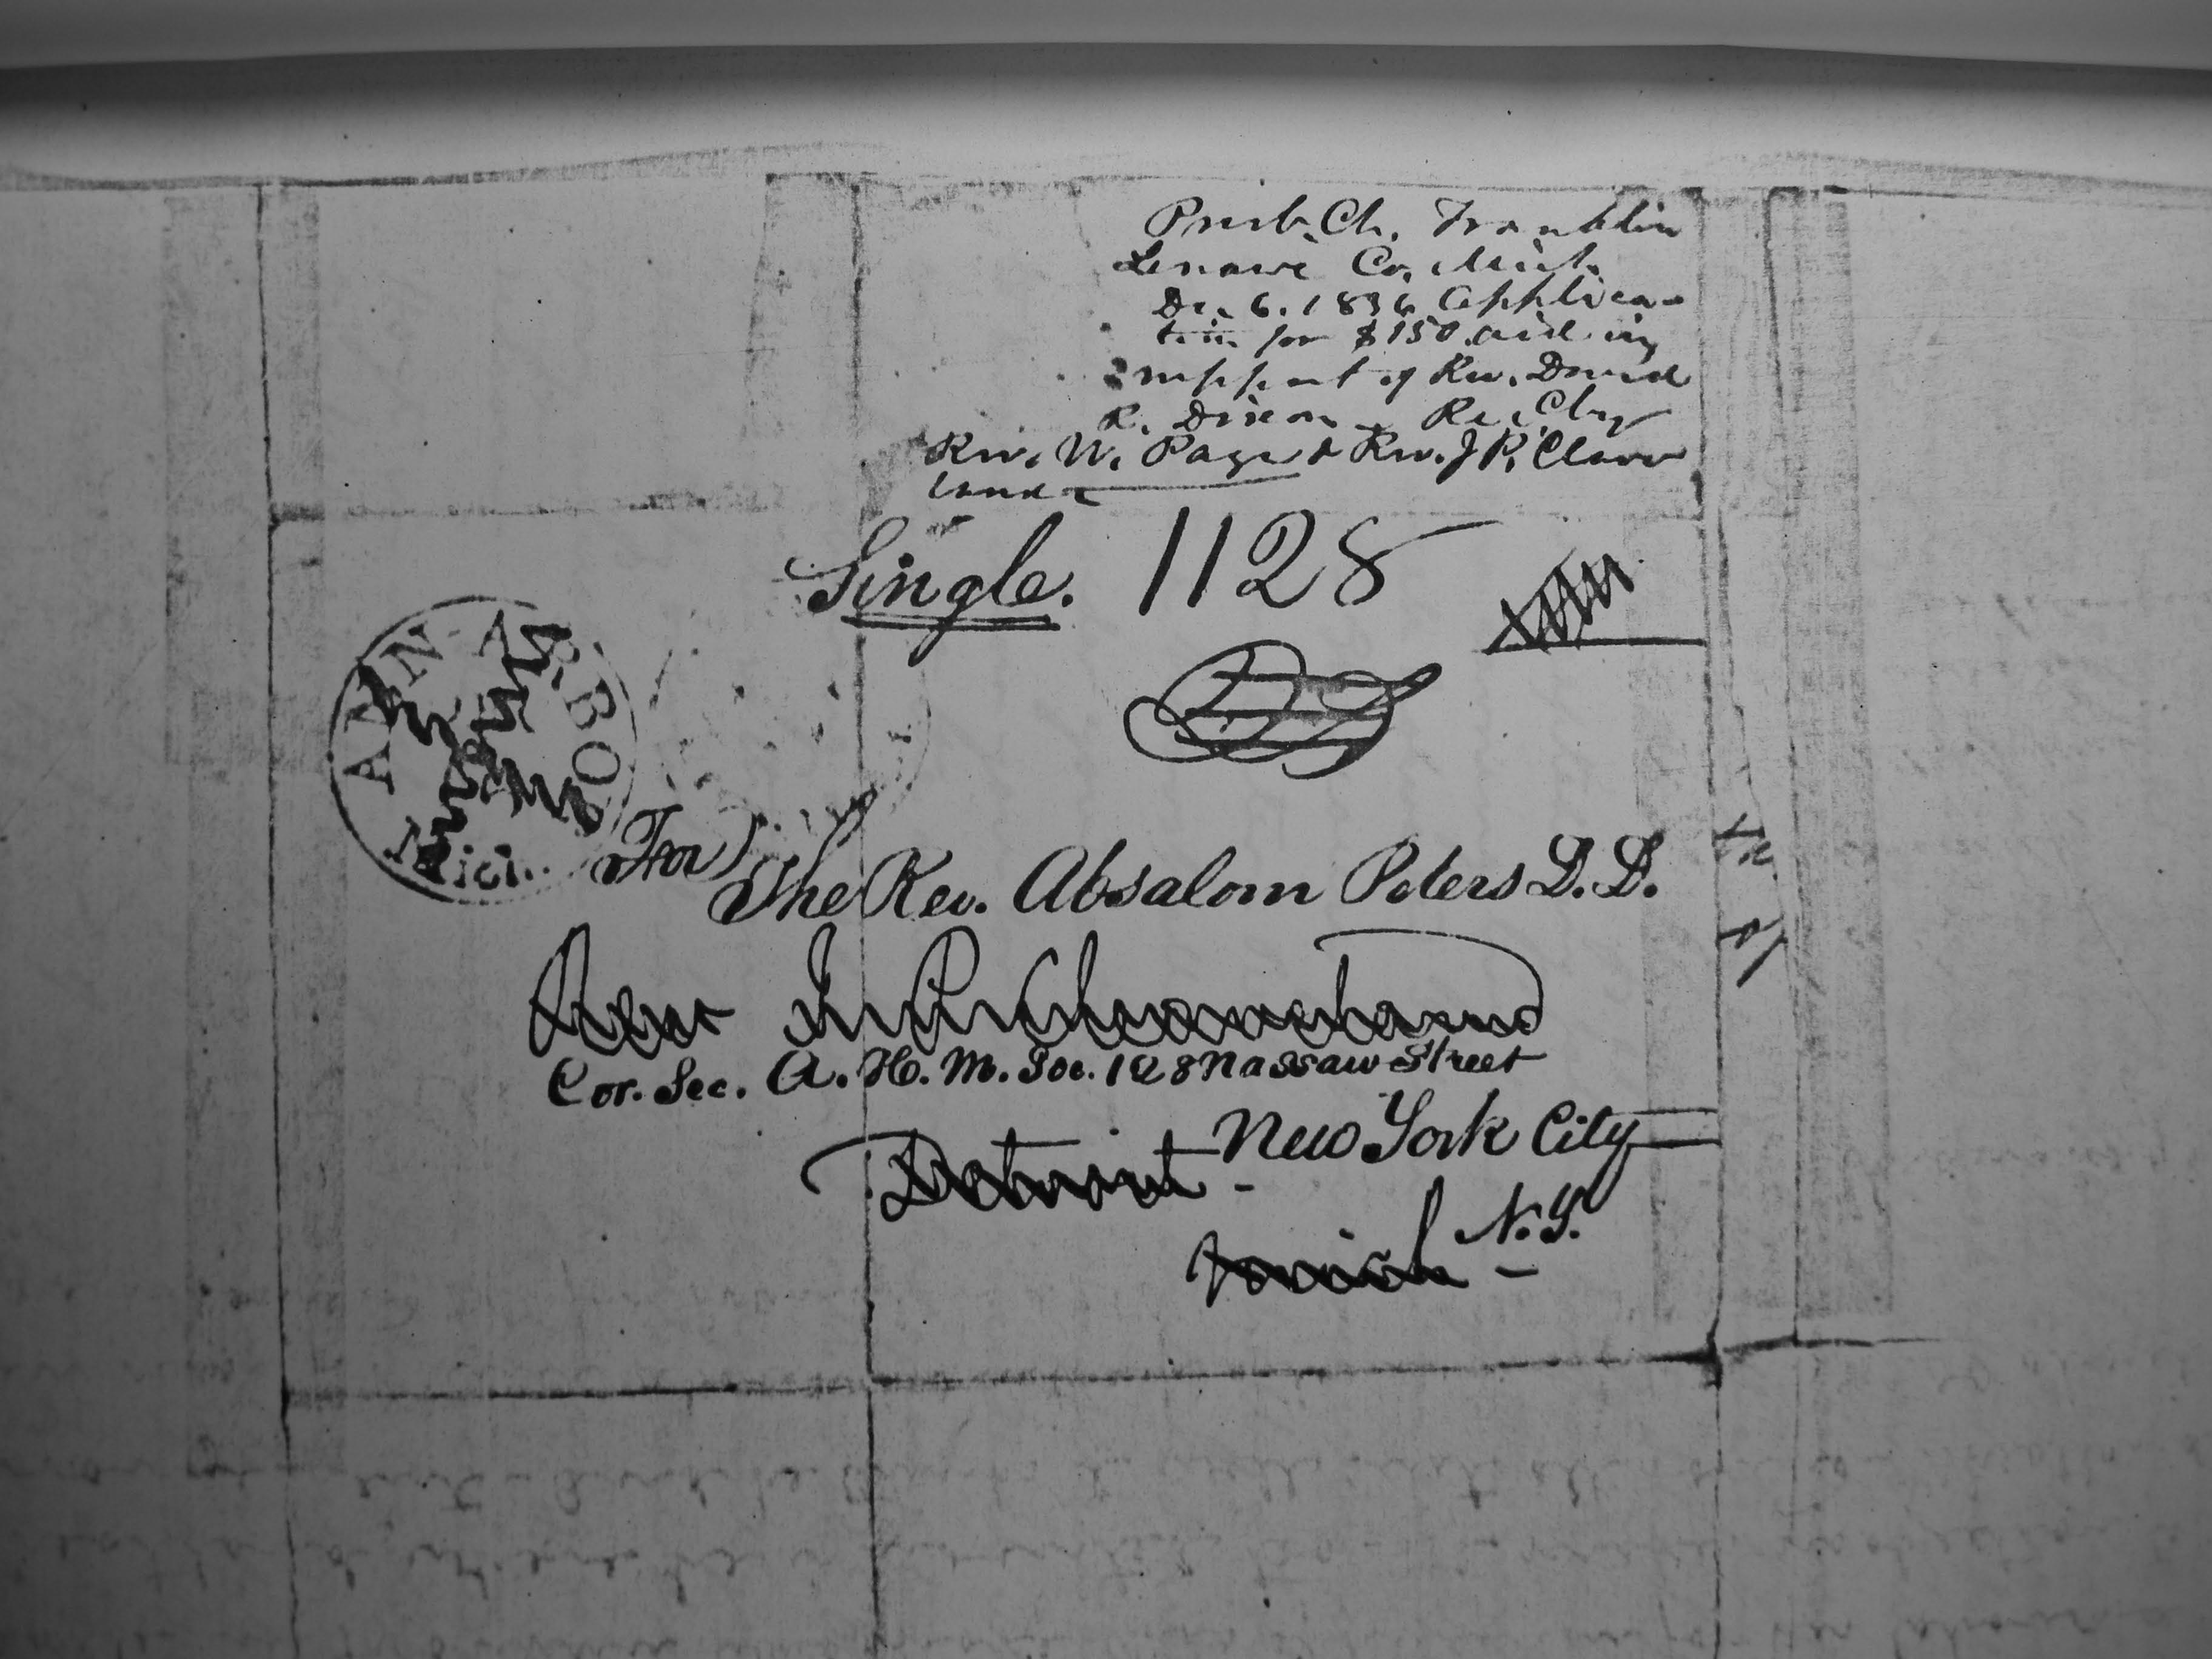 Presb. Ch. Franklin
Lenawe Co. Mich.
De. 6. 1836 Applica-
tion for $150 aid in
support of Rev. David
R. Dixon - Rec. by
Rev. W. Page & Rev. J P. Cleav
land
Single. 1128
ANN ARBO
Mich.
For
The Rev. Absalom Peters D.D.
Rev J. P. Cleaveland
Cor. Sec. A. H. M. Soc. 128 Nassaw Street
New York City
Detroit -
N.Y.
Mich -